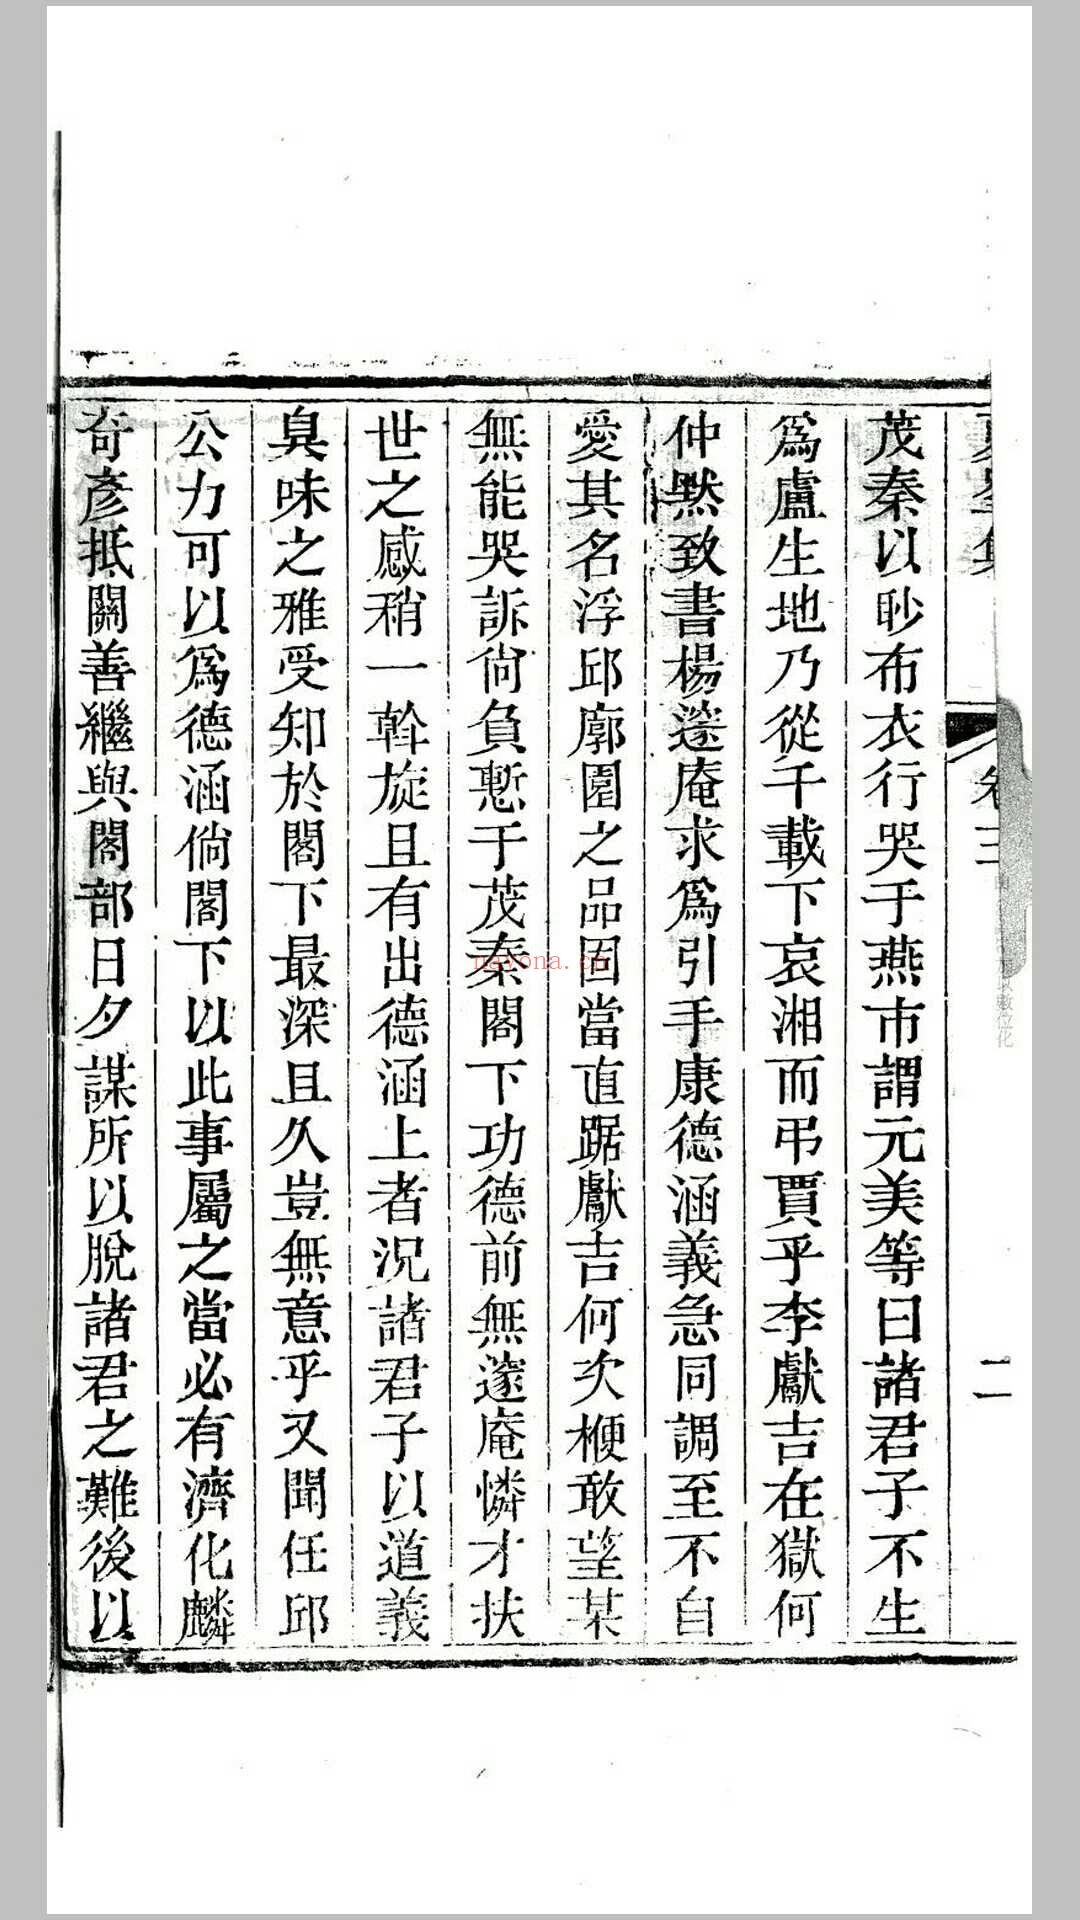 卷三
二
茂秦以眇布衣行哭于燕市謂元美等曰諸君子不生
爲盧生地乃從千載下哀湘而弔賈乎李獻吉在獄何
仲默致書楊邃庵求爲引手康德涵義急同調至不自
愛其名浮邱廓園之品固當直踞獻吉何次楩敢望某
無能哭訴尙負慙于茂秦閣下功德前無邃庵憐才扶
世之感稍一斡旋且有出德涵上者况諸君子以道義
臭味之雅受知於閣下最深且久豈無意乎又聞任邱
公力可以爲德涵倘閣下以此事屬之當必有濟化麟
奇彥抵關善繼與閣部日夕謀所以脫諸君之難後以
nayona.cn